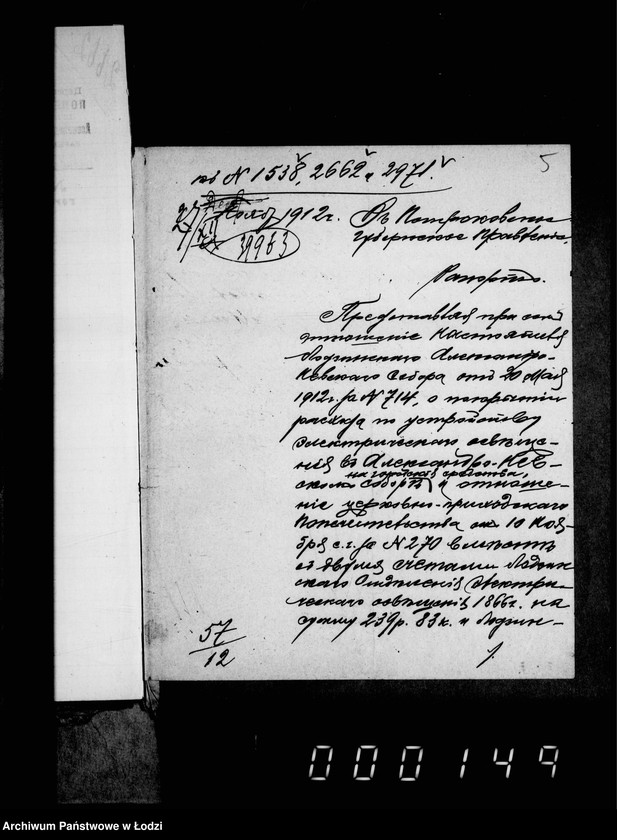 5
къ N 1538, 2662 и 2971.
27 Нояб. 1912 г. Въ Петроковское
39963 Губернское Правленіе.
Рапортъ.
Представляя при семъ
отношеніе Настоятеля
Лодзинскаго Александро-
Невскаго Собора отъ 20 Мая
1912 г. за N 714, о покрытіи
расхода по устройству
электрическаго освѣще-
нія въ Александро-Нев-
на городскія средства,
скомъ Соборѣ и отноше-
ніе церковно-приходскаго
Попечительства отъ 10 Ноя-
бря с.г. за N 270 вмѣстѣ
съ двумя счетами Лодзин-
скаго Отдѣленія Электри-
ческаго освѣщенія 1866 г. на
сумму 239 р. 83 к. и Лодзин-
57
12
000149
Archiwum Państwowe w Łodzi